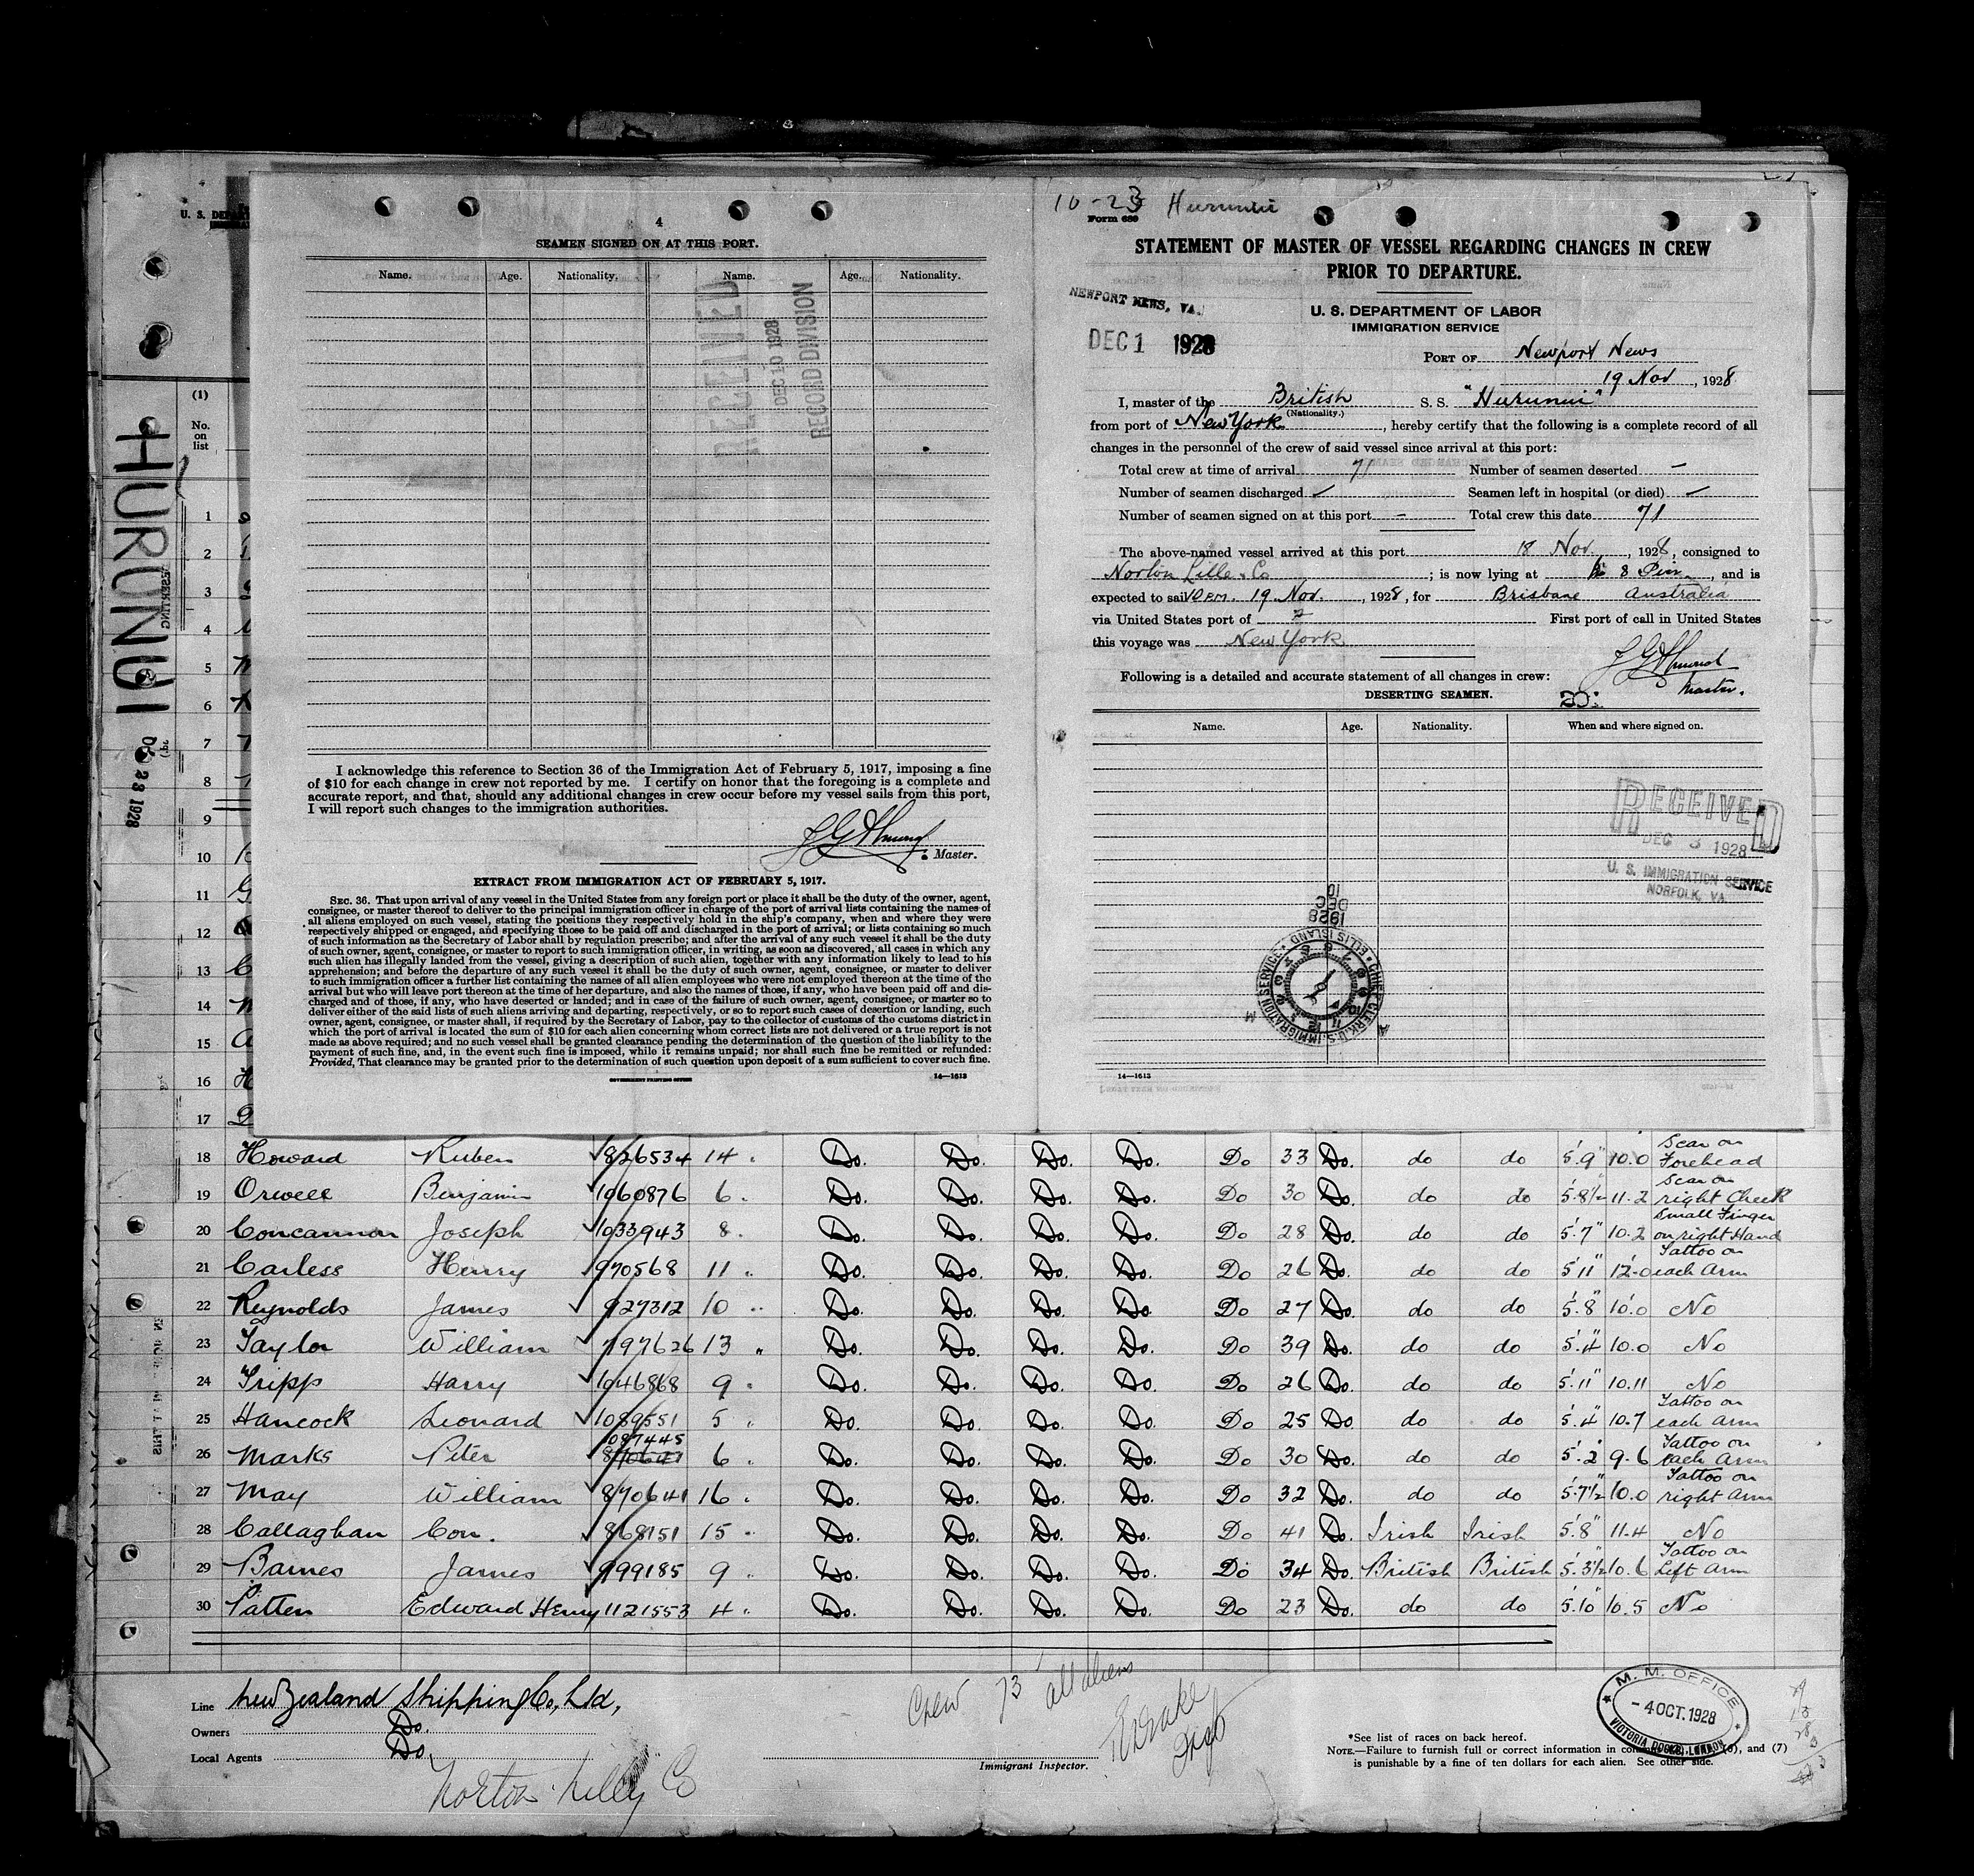 U. S.
(1)
No.
on
list
HURUNUI
1928
1
2
3
4
5
6
7
8
9
10
11
12
13
14
15
16
17
4
SEAMEN SIGNED ON AT THIS PORT.
Name. Age. Nationality. Name. Age. Nationality.
RECEIVED
DEC 10 1928
RECORD DIVISION
I acknowledge this reference to Section 36 of the Immigration Act of February 5, 1917, imposing a fine
of $10 for each change in crew not reported by me. I certify on honor that the foregoing is a complete and
accurate report, and that, should any additional changes in crew occur before my vessel sails from this port,
I will report such changes to the immigration authorities.
Master.
EXTRACT FROM IMMIGRATION ACT OF FEBRUARY 5, 1917.
SEC. 36. That upon arrival of any vessel in the United States from any foreign port or place it shall be the duty of the owner, agent,
consignee, or master thereof to deliver to the principal immigration officer in charge of the port of arrival lists containing the names of
all aliens employed on such vessel, stating the positions they respectively hold in the ship's company, when and where they were
respectively shipped or engaged, and specifying those to be paid off and discharged in the port of arrival; or lists containing so much
of such information as the Secretary of Labor shall by regulation prescribe; and after the arrival of any such vessel it shall be the duty
of such owner, agent, consignee, or master to report to such immigration officer, in writing, as soon as discovered, all cases in which any
such alien has illegally landed from the vessel, giving a description of such alien, together with any information likely to lead to his
apprehension; and before the departure of any such vessel it shall be the duty of such owner, agent, consignee, or master to deliver
to such immigration officer a further list containing the names of all alien employees who were not employed thereon at the time of the
arrival but who will leave port thereon at the time of her departure, and also the names of those, if any, who have been paid off and dis-
charged and of those, if any, who have deserted or landed; and in case of the failure of such owner, agent, consignee, or master so to
deliver either of the said lists of such aliens arriving and departing, respectively, or so to report such cases of desertion or landing, such
owner, agent, consignee, or master shall, if required by the Secretary of Labor, pay to the collector of customs of the customs district in
which the port of arrival is located the sum of $10 for each alien concerning whom correct lists are not delivered or a true report is not
made as above required; and no such vessel shall be granted clearance pending the determination of the question of the liability to the
payment of such fine, and, in the event such fine is imposed, while it remains unpaid; nor shall such fine be remitted or refunded:
Provided, That clearance may be granted prior to the determination of such question upon deposit of a sum sufficient to cover such fine.
GOVERNMENT PRINTING OFFICE 14—1613
10-23 Hurunui
Form 689
STATEMENT OF MASTER OF VESSEL REGARDING CHANGES IN CREW
PRIOR TO DEPARTURE.
NEWPORT NEWS, VA.
DEC 1 1928
U. S. DEPARTMENT OF LABOR
IMMIGRATION SERVICE
PORT OF Newport News
19 Nov, 1928
I, master of the British S. S. "Hurunui"
(Nationality.)
from port of New York, hereby certify that the following is a complete record of all
changes in the personnel of the crew of said vessel since arrival at this port:
Total crew at time of arrival 71 Number of seamen deserted —
Number of seamen discharged Seamen left in hospital (or died)
Number of seamen signed on at this port — Total crew this date 71
The above-named vessel arrived at this port 18 Nov., 1928, consigned to
Norton Lille & Co; is now lying at 8 Pier, and is
expected to sail 10 PM. 19 Nov., 1928, for Brisbane Australia
via United States port of First port of call in United States
this voyage was New York
Following is a detailed and accurate statement of all changes in crew:
Master.
DESERTING SEAMEN.
Name. Age. Nationality. When and where signed on.
RECEIVED
DEC 3 1928
U. S. IMMIGRATION SERVICE
NORFOLK, VA
10
DEC
1928
CHIEF CLERK, U.S. IMMIGRATION SERVICE ELLIS ISLAND
14—1613
18 Howard Ruben 826534 14 " Do. Do. Do. Do. Do 33 Do. do do 5'9" 10.0 Scar on Forehead
19 Orwell Benjamin 1060876 6 " Do. Do. Do. Do. Do 30 Do. do do 5'8½ 11.2 Scar on right Cheek
20 Concannon Joseph 1033943 8 " Do. Do. Do. Do. Do 28 Do. do do 5'7" 10.2 Small Finger on right Hand
21 Carless Henry 970568 11 " Do. Do. Do. Do. Do 26 Do. do do 5'11" 12.0 Tattoo on each Arm
22 Reynolds James 927312 10 " Do. Do. Do. Do. Do 27 Do. do do 5'8" 10.0 No
23 Taylor William 797626 13 " Do. Do. Do. Do. Do 39 Do. do do 5'4" 10.0 No
24 Tripp Harry 1046868 9 " Do. Do. Do. Do. Do 26 Do. do do 5'11" 10.11 No
25 Hancock Leonard 1089551 5 " Do. Do. Do. Do. Do 25 Do. do do 5'4" 10.7 Tattoo on each Arm
26 Marks Peter 1097445 6 " Do. Do. Do. Do. Do 30 Do. do do 5'2" 9.6 Tattoo on each Arm
27 May William 870641 16 " Do. Do. Do. Do. Do 32 Do. do do 5'7½ 10.0 Tattoo on right Arm
28 Callaghan Con. 868151 15 " Do. Do. Do. Do. Do 41 Do. Irish Irish 5'8" 11.4 No
29 Barnes James 999185 9 " Do. Do. Do. Do. Do 34 Do. British British 5'3½ 10.6 Tattoo on Left Arm
30 Patten Edward Henry 1121553 4 " Do. Do. Do. Do. Do 23 Do. do do 5'10" 10.5 No
Line New Zealand Shipping Co, Ltd,
Owners Do.
Local Agents Do.
Norton Lilly Co
Crew 73 all aliens
Immigrant Inspector.
M. M. OFFICE
-4 OCT. 1928
VICTORIA DOCKS, LONDON
*See list of races on back hereof.
NOTE.—Failure to furnish full or correct information in (6), and (7)
is punishable by a fine of ten dollars for each alien. See other side.